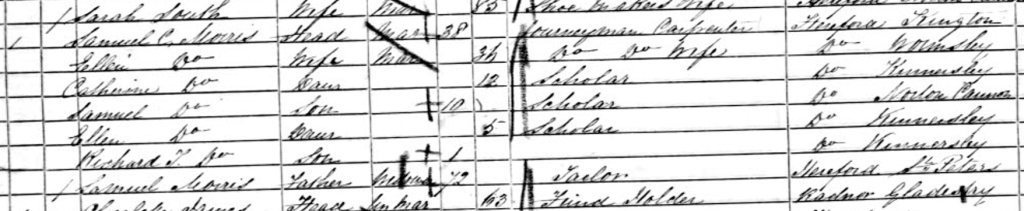 1 Sarah South Wife Mar 85 Shoe Makers Wife
1 Samuel C. Morris Head Mar 38 Journeyman Carpenter Hereford Kington
Ellen Do Wife Mar 34 Do Do Wife Do Wormsley
Catherine Do Daur 12 Scholar Do Kinnersley
Samuel Do Son 10 Scholar Do Norton Cannon
Ellen Do Daur 5 Scholar Do Kinnersley
Richard T. Do Son 1 Do Kinnersley
1 Samuel Morris Father Widower 72 Tailor Hereford St. Peters
James Head Unmar 63 Fund Holder Radnor Gladestry